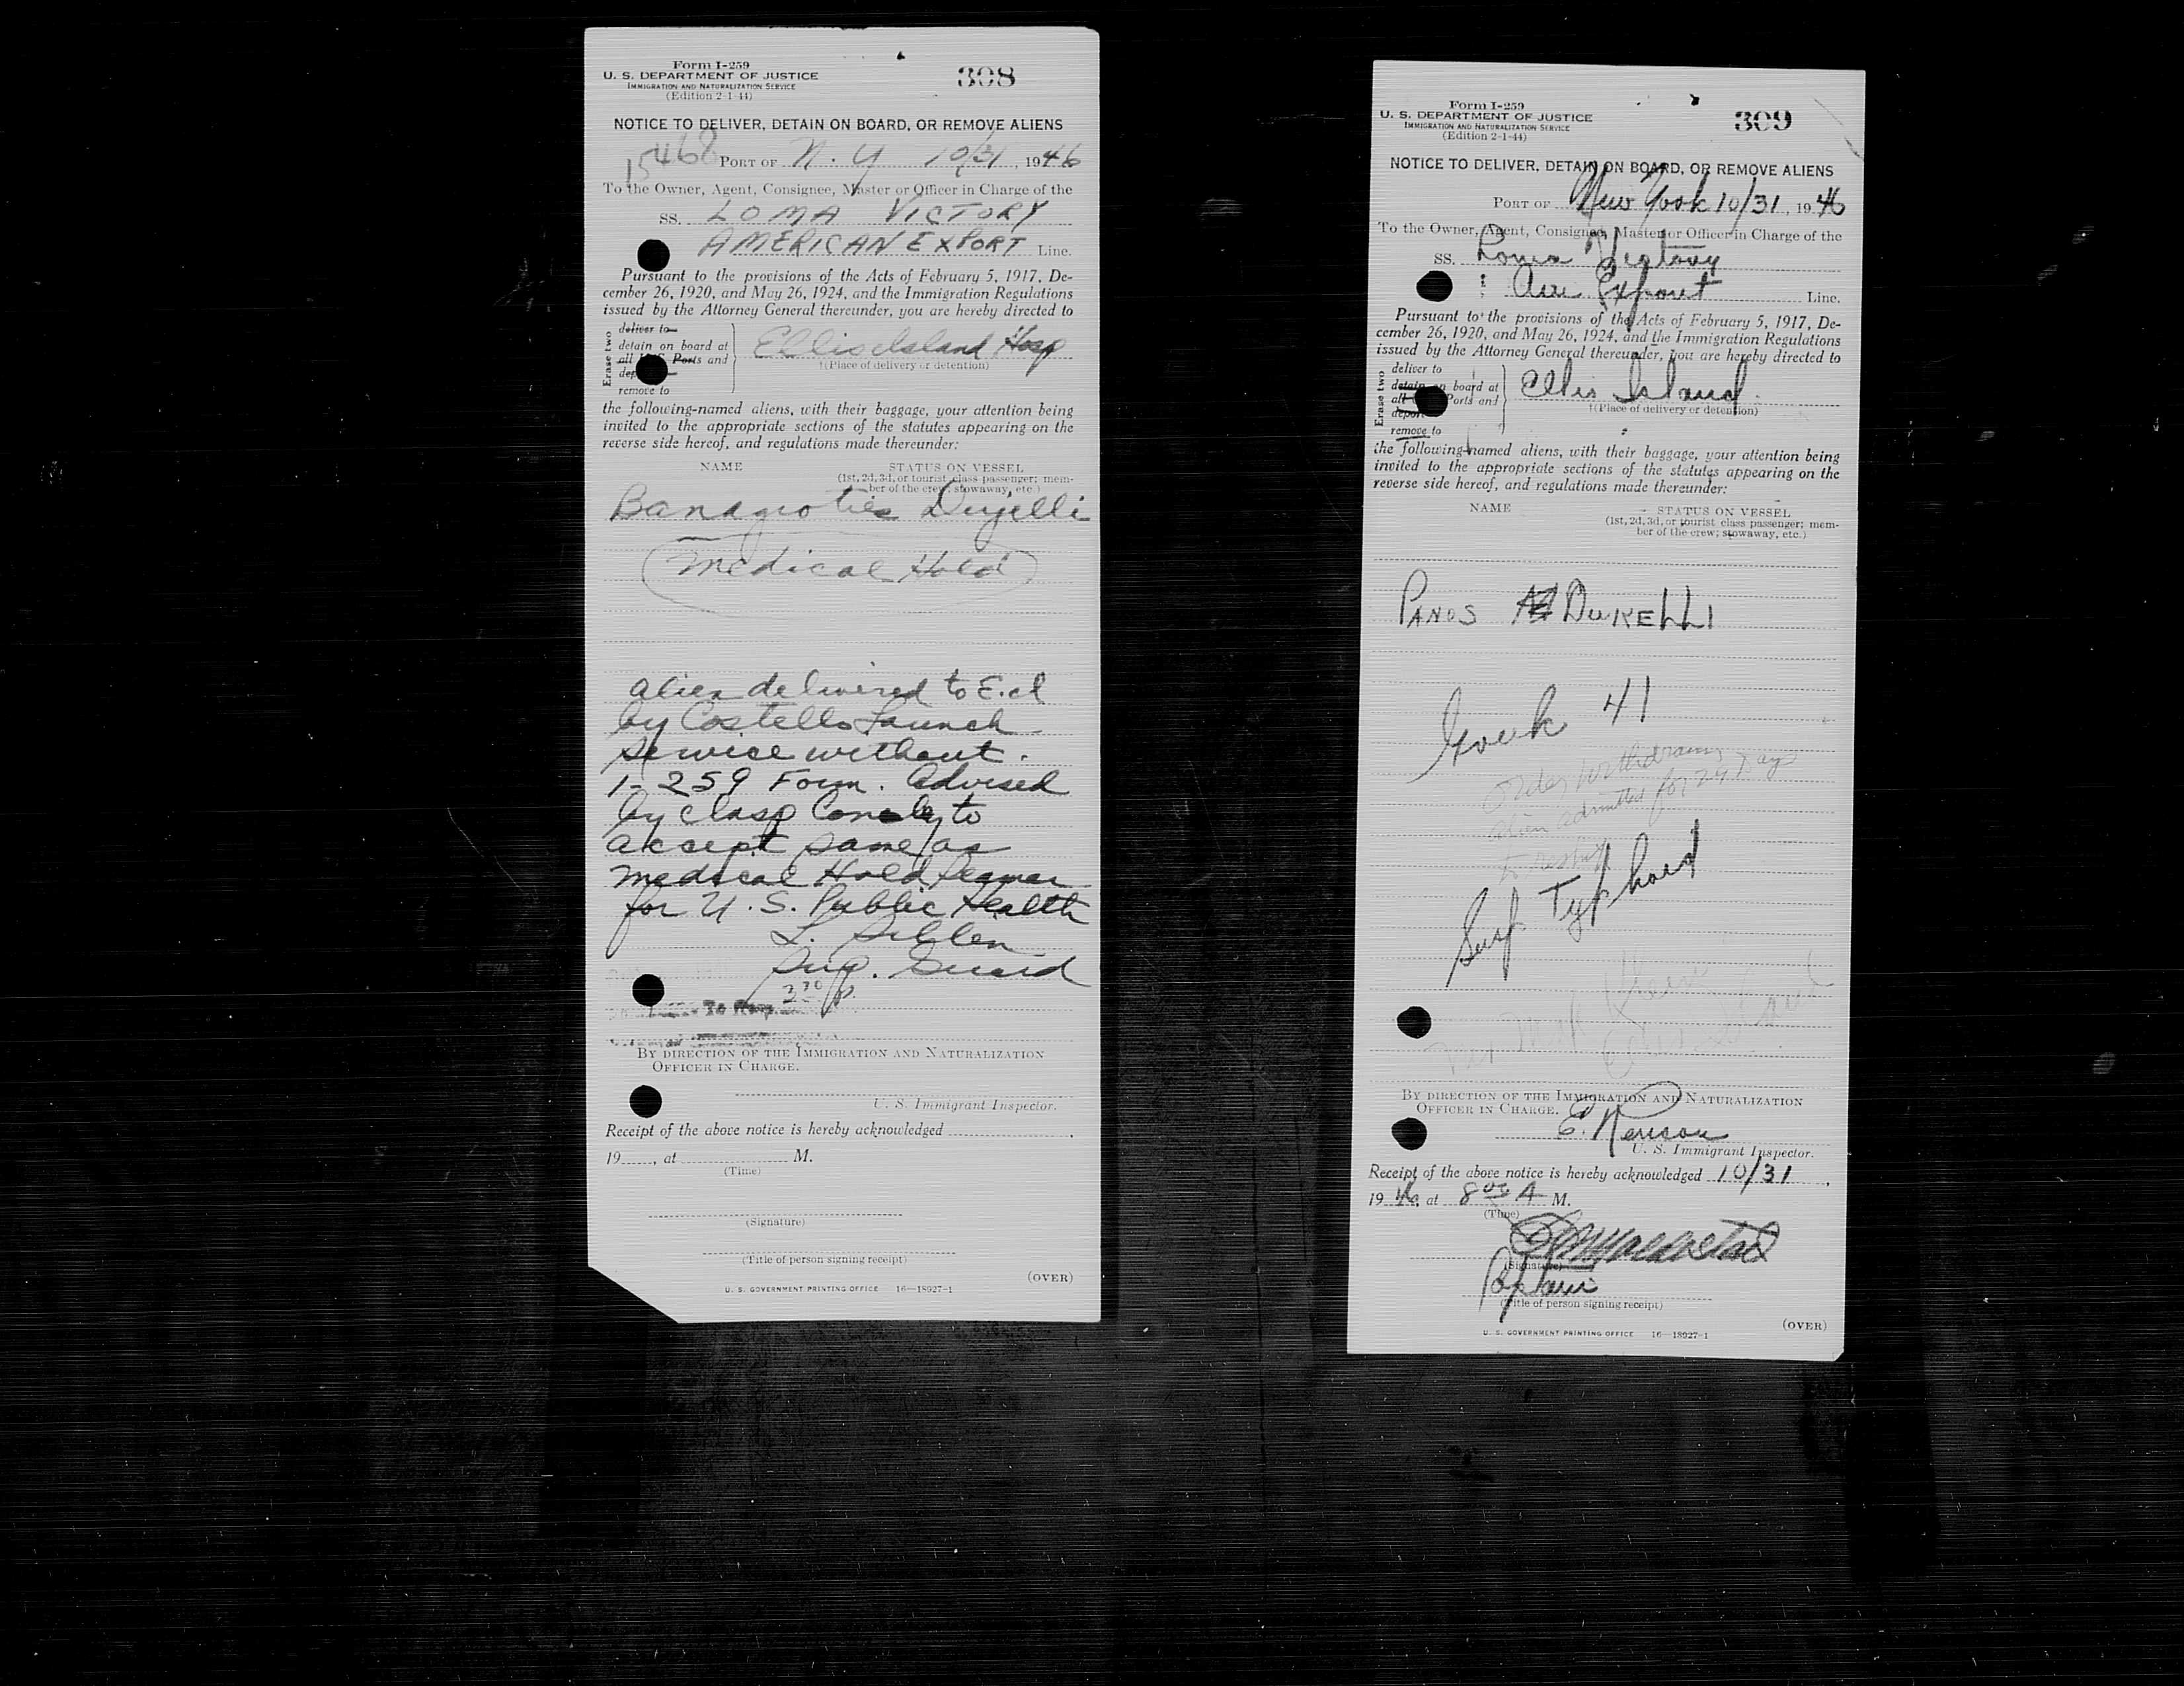 Form I-259
U. S. DEPARTMENT OF JUSTICE
IMMIGRATION AND NATURALIZATION SERVICE
(Edition 2-1-44)
308
NOTICE TO DELIVER, DETAIN ON BOARD, OR REMOVE ALIENS
15468
PORT OF N. Y 10/31, 1946
To the Owner, Agent, Consignee, Master or Officer in Charge of the
SS. LOMA VICTORY
AMERICAN EXPORT Line.
Pursuant to the provisions of the Acts of February 5, 1917, De-
cember 26, 1920, and May 26, 1924, and the Immigration Regulations
issued by the Attorney General thereunder, you are hereby directed to
Erase two
deliver to
detain on board at
all Ports and
remove to
Ellis Island Hosp
†(Place of delivery or detention)
the following-named aliens, with their baggage, your attention being
invited to the appropriate sections of the statutes appearing on the
reverse side hereof, and regulations made thereunder:
NAME STATUS ON VESSEL
(1st, 2d, 3d, or tourist class passenger; mem-
ber of the crew; stowaway, etc.)
Medical Hold
alien delivered to E.I
by Costello Launch
Service without
1-259 Form. Advised
by
accept same as
medical Hold
for U. S. Public Health
L.
Guard
3 30 p.
BY DIRECTION OF THE IMMIGRATION AND NATURALIZATION
OFFICER IN CHARGE.
U. S. Immigrant Inspector.
Receipt of the above notice is hereby acknowledged
19, at M.
(Time)
(Signature)
(Title of person signing receipt)
(OVER)
U. S. GOVERNMENT PRINTING OFFICE 16—18927-1
Form I-259
U. S. DEPARTMENT OF JUSTICE
IMMIGRATION AND NATURALIZATION SERVICE
(Edition 2-1-44)
309
NOTICE TO DELIVER, DETAIN ON BOARD, OR REMOVE ALIENS
PORT OF New York 10/31, 1946
To the Owner, Agent, Consignee, Master or Officer in Charge of the
SS. Victory
Export Line.
Pursuant to the provisions of the Acts of February 5, 1917, De-
cember 26, 1920, and May 26, 1924, and the Immigration Regulations
issued by the Attorney General thereunder, you are hereby directed to
Erase two
deliver to
detain on board at
all Ports and
deport
remove to
Ellis Island
†(Place of delivery or detention)
the following-named aliens, with their baggage, your attention being
invited to the appropriate sections of the statutes appearing on the
reverse side hereof, and regulations made thereunder:
NAME STATUS ON VESSEL
(1st, 2d, 3d, or tourist class passenger; mem-
ber of the crew; stowaway, etc.)
PANOS DUKELLI
41
Order withdrawn
alien admitted for 29 Days
Susp. Typhoid
BY DIRECTION OF THE IMMIGRATION AND NATURALIZATION
OFFICER IN CHARGE.
E.
U. S. Immigrant Inspector.
Receipt of the above notice is hereby acknowledged 10/31,
1946, at 8 00 A M.
(Time)
(Signature)
(Title of person signing receipt)
(OVER)
U. S. GOVERNMENT PRINTING OFFICE 16—18927-1